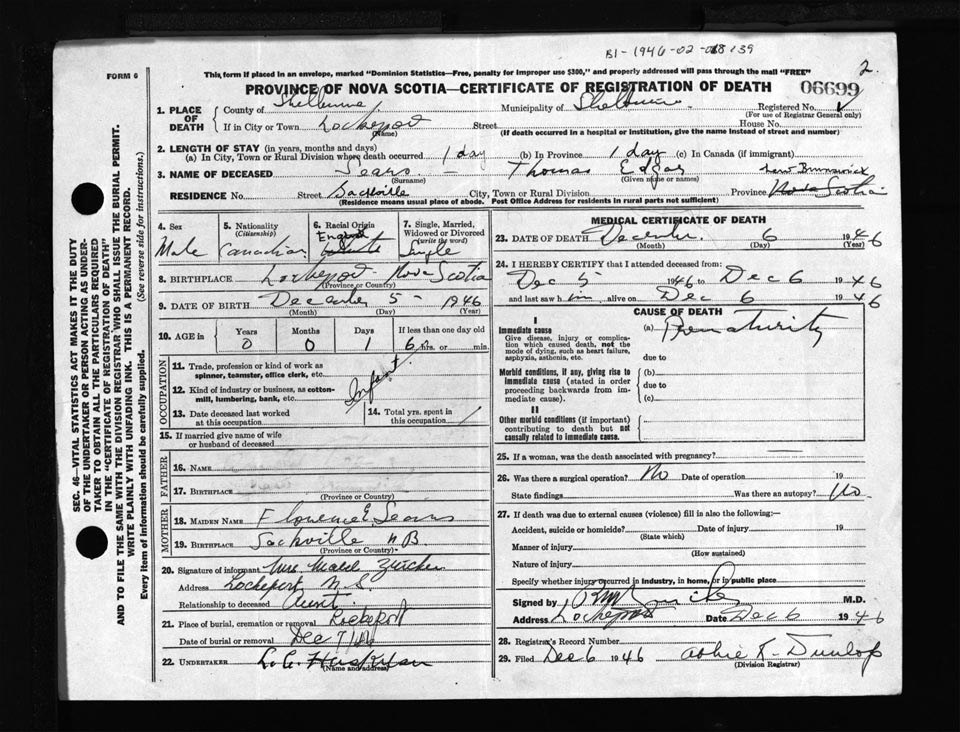 B1-1946-02-018139
2.
FORM 6
This form if placed in an envelope, marked "Dominion Statistics—Free, penalty for improper use $300," and properly addressed will pass through the mail "FREE"
PROVINCE OF NOVA SCOTIA—CERTIFICATE OF REGISTRATION OF DEATH
06699
1. PLACE OF DEATH
County of Shelburne Municipality of Shelburne Registered No.
(For use of Registrar General only)
If in City or Town Lockeport Street House No.
(Name) (If death occurred in a hospital or institution, give the name instead of street and number)
2. LENGTH OF STAY (in years, months and days)
(a) In City, Town or Rural Division where death occurred 1 day (b) In Province 1 day (c) In Canada (if immigrant)
3. NAME OF DECEASED Sears — Thomas Edgar
(Surname) (Given name or names)
New Brunswick
RESIDENCE No. Street Sackville City, Town or Rural Division Province Nova Scotia
(Residence means usual place of abode. Post Office Address for residents in rural parts not sufficient)
SEC. 46—VITAL STATISTICS ACT MAKES IT THE DUTY
OF THE UNDERTAKER OR PERSON ACTING AS UNDER-
TAKER TO OBTAIN ALL THE PARTICULARS REQUIRED
IN THE "CERTIFICATE OF REGISTRATION OF DEATH"
AND TO FILE THE SAME WITH THE DIVISION REGISTRAR WHO SHALL ISSUE THE BURIAL PERMIT.
WRITE PLAINLY WITH UNFADING INK. THIS IS A PERMANENT RECORD.
Every item of information should be carefully supplied. (See reverse side for instructions.)
4. Sex 5. Nationality (Citizenship) 6. Racial Origin 7. Single, Married, Widowed or Divorced (write the word)
Male Canadian Single
8. BIRTHPLACE Lockeport Nova Scotia
(Province or Country)
9. DATE OF BIRTH December 5 - 1946
(Month) (Day) (Year)
10. AGE in Years Months Days If less than one day old
0 0 1 6 hrs. or min.
OCCUPATION
11. Trade, profession or kind of work as
spinner, teamster, office clerk, etc.
12. Kind of industry or business, as cotton-
mill, lumbering, bank, etc.
Infant
13. Date deceased last worked
at this occupation
14. Total yrs. spent in
this occupation
15. If married give name of wife
or husband of deceased
FATHER
16. NAME
17. BIRTHPLACE
(Province or Country)
MOTHER
18. MAIDEN NAME Florence E Sears
19. BIRTHPLACE Sackville N B.
(Province or Country)
20. Signature of informant Mrs. Mabel
Address Lockeport N. S.
Relationship to deceased Aunt.
21. Place of burial, cremation or removal Lockeport
Date of burial or removal Dec 7/46
22. UNDERTAKER L. C.
(Name and address)
MEDICAL CERTIFICATE OF DEATH
23. DATE OF DEATH December 6 1946
(Month) (Day) (Year)
24. I HEREBY CERTIFY that I attended deceased from:
Dec 5 1946 to Dec 6 1946
and last saw him alive on Dec 6 1946
CAUSE OF DEATH
I
Immediate cause
Give disease, injury or complica-
tion which caused death, not the
mode of dying, such as heart failure,
asphyxia, asthenia, etc.
(a) Prematurity
due to
Morbid conditions, if any, giving rise to
immediate cause (stated in order
proceeding backwards from im-
mediate cause).
(b)
due to
(c)
II
Other morbid conditions (if important)
contributing to death but not
causally related to immediate cause.
25. If a woman, was the death associated with pregnancy?
26. Was there a surgical operation? No Date of operation 19
State findings Was there an autopsy? No
27. If death was due to external causes (violence) fill in also the following:—
Accident, suicide or homicide? Date of injury 19
(State which)
Manner of injury
(How sustained)
Nature of injury
Specify whether injury occurred in industry, in home, or in public place
Signed by M.D.
Address Lockeport Date Dec 6 1946
28. Registrar's Record Number
29. Filed Dec 6 1946 K. Dunlop
(Division Registrar)